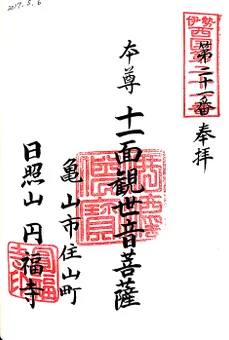 2017.5.6
伊勢
西国
第二十一番
奉拝
本尊 十一面観世音菩薩
亀山市住山町
日照山 円福寺